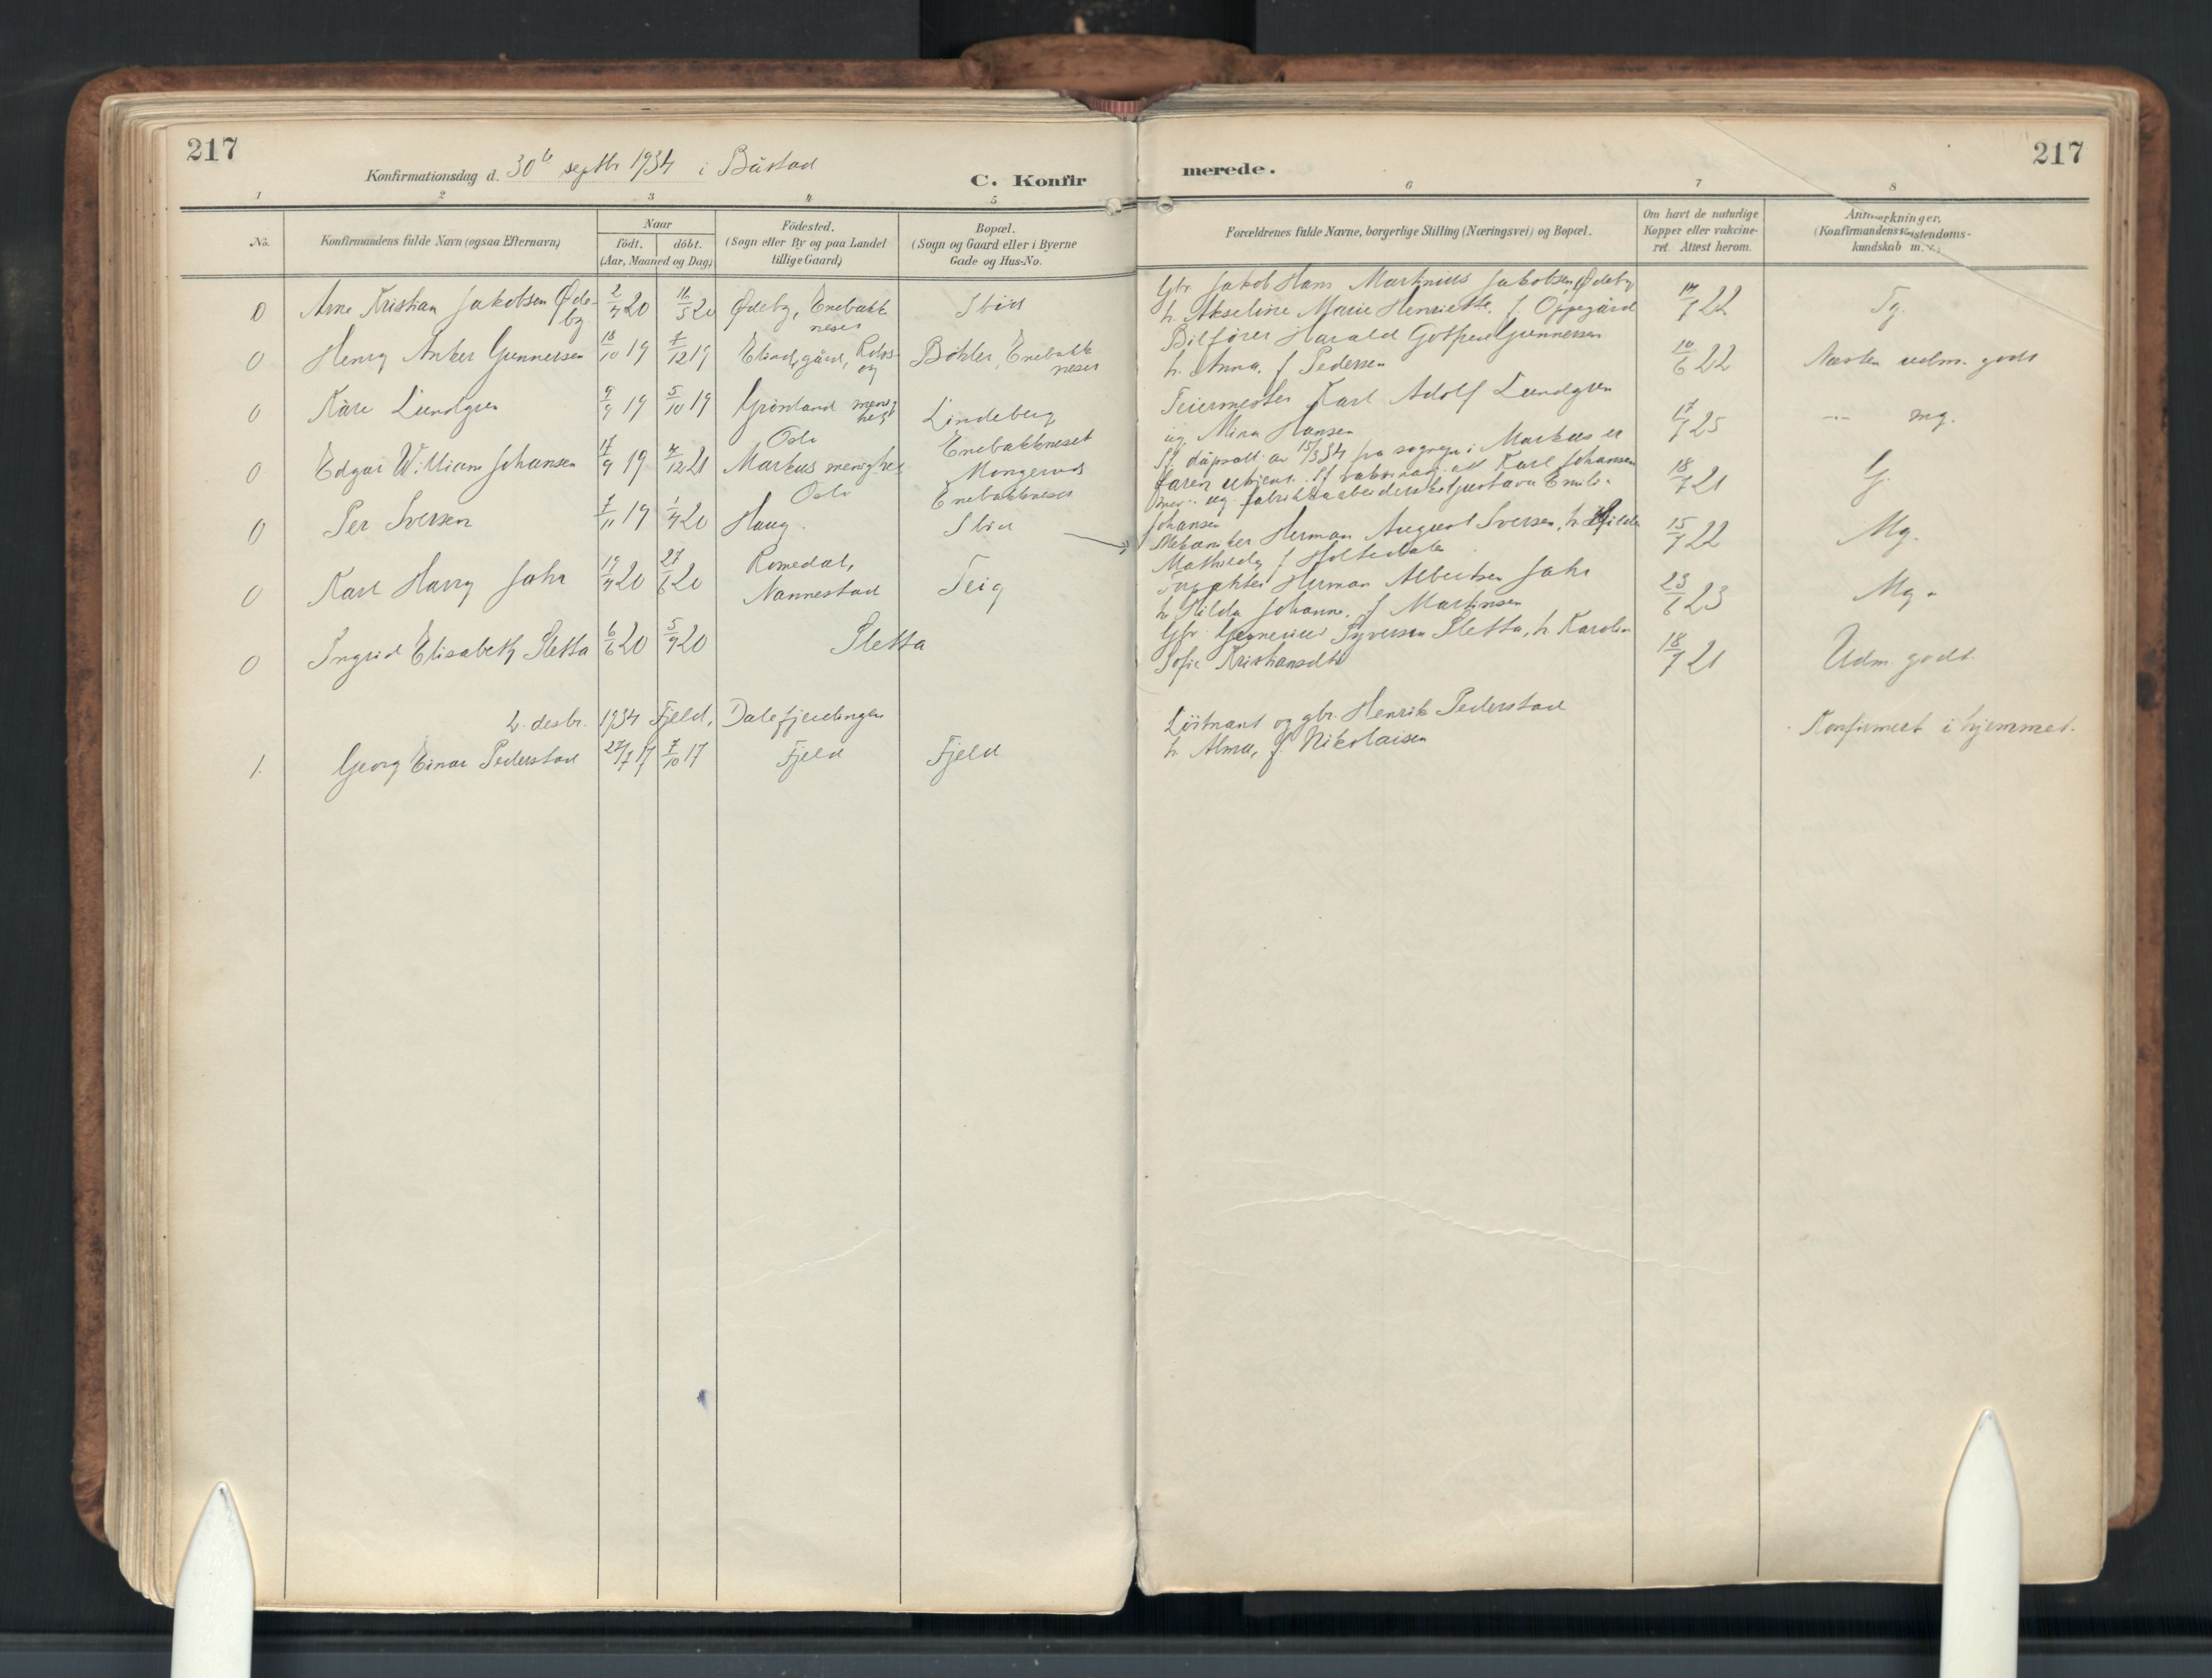 217
Konfirmationsdag d. 30te septbr 1934 i Båstad
C. Konfir
1 2 3 4 5
No.
Konfirmandens fulde Navn (ogsaa Efternavn)
Naar
födt. döbt.
(Aar, Maaned og Dag)
Födested.
(Sogn eller By og paa Landet
tillige Gaard)
Bopæl.
(Sogn og Gaard eller i Byerne
Gade og Hus-No.
0 Arne Kristian Jakobsen Øde-
by 2/4 20 16/5 20 Ødeby, Enebakk
neset Ibid
0 Henry Anker Gunnersen 18/10 19 7/12 19 Böhler, Enebakk
neset
0 Kåre Lundgren 9/9 19 5/10 19 Grönland menig
het
Oslo Lindeberg
Enebakkneset
0 Edgar William Johansen 17/9 19 4/12 21 Markus menighet
Oslo Mangerud
Enebakkneset
0 Per Iversen 7/11 19 1/4 20 Haug. Ibid
0 Karl Harry Jahr 19/4 20 27/6 20 Romedal,
Nannestad Teig
0 Ingrid Elisabeth Sletta 6/6 20 5/9 20 Sletta
2. desbr. 1934 Fjeld, Dalefjerdingen
1. Georg Einar Pederstad 27/7 17 7/10 17 Fjeld Fjeld
merede.
217
6 7 8
Forældrenes fulde Navne, borgerlige Stilling (Næringsvei) og Bopæl.
Om havt de naturlige
Kopper eller vakcine-
ret. Attest herom.
Anmerkninger.
(Konfirmandens
kundskab m. v.)
Gbr. Jakob Hans Martinius Jakobsen Ødeby
h. Akseline Marie Henriette, f. Oppegård 22 Tg.
Bilfører Harald Gotfred Gunnersen
h. Anna, f Pedersen 10/6 22 Næsten udm. godt
Feiermester Karl Adolf Lundgren
ug. Mina Hansen 17/7 25 -..- mg.
Sf. dåpsatt. av 15/3 34 fra sognepr. i Markus er
faren Karl Johansen
ug. fabrikkarbeiderske Gustava Emilie
Johansen 18/7 21 G.
Mekaniker Herman August Iversen, h. Hilda
Mathilde, f 15/7 22 Mg.
Herman Albertsen Jahr
h. Hilda Johanne, f Martinsen 23/6 23 Mg.
Gbr. Syversen Sletta, h. Karoline
Sofie Kristiansdtr 18/7 21 Udm. godt.
Löitnant og gbr. Henrik Pederstad
h. Alma, f. Nikolaisen Konfirmert i hjemmet.